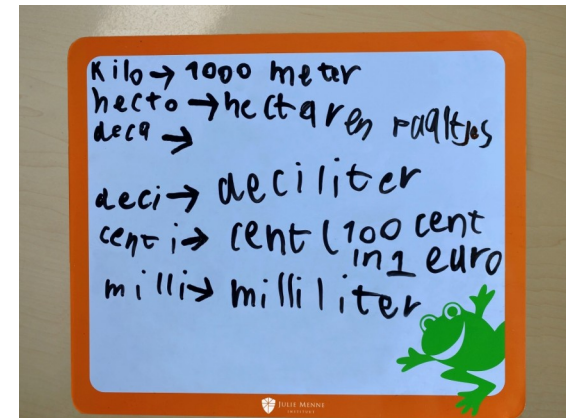 Kilo → 1000 meter
hecto → hectaren paaltjes
deca →
deci → deciliter
centi → cent (100 cent
in 1 euro
milli → milliliter
JULIE MENNE
INSTITUUT